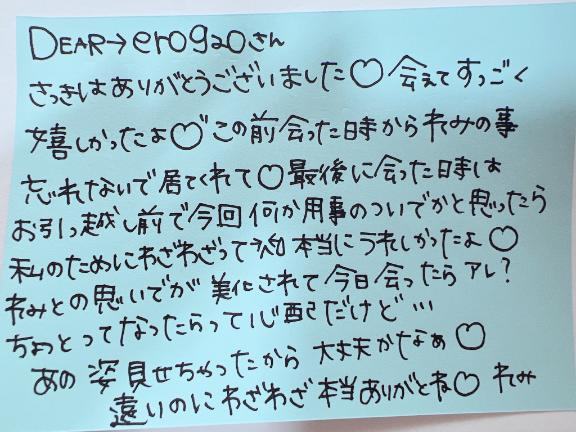 DEAR→erog20さん
さっきはありがとうございました♡会えてすっごく
嬉しかったよ♡この前会った日時かられみの事
忘れないで居てくれて♡最後に会った日時は
お引っ越し前で今回何か用事のついでかと思ったら
私のためにわざわざって 本当にうれしかったよ♡
れみとの思いでが美化されて今日会ったらアレ?
ちょっとってなったらって心配だけど…
あの姿見せちゃったから大丈夫かなぁ♡
遠いのにわざわざ本当ありがとね♡ れみ